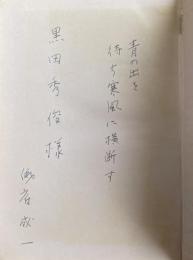 青の出を
待ち寒風に横断す
黒田秀俊様
成一